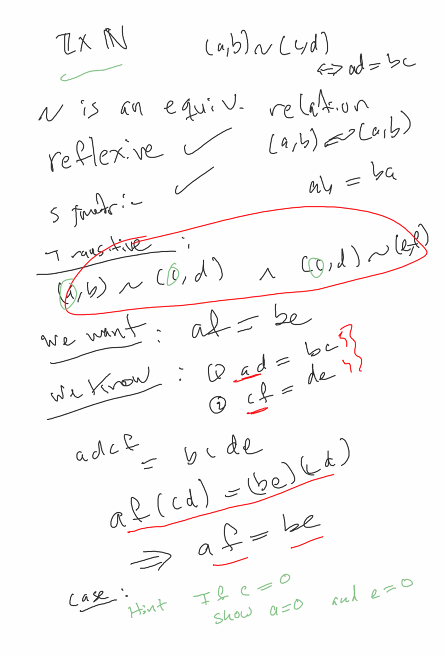 ℤ × ℕ (a,b) ~ (c,d)
⇔ ad = bc
~ is an equiv. relation
reflexive ✓ (a,b) ⇔ (a,b)
symmetric ✓ ab = ba
Transitive :
(a,b) ~ (0,d) ∧ (0,d) ~ (e,f)
we want : af = be
we know : ① ad = bc
② cf = de
adcf = bcde
af(cd) = (be)(cd)
⇒ af = be
case :
Hint If c = 0
show a=0 and e=0